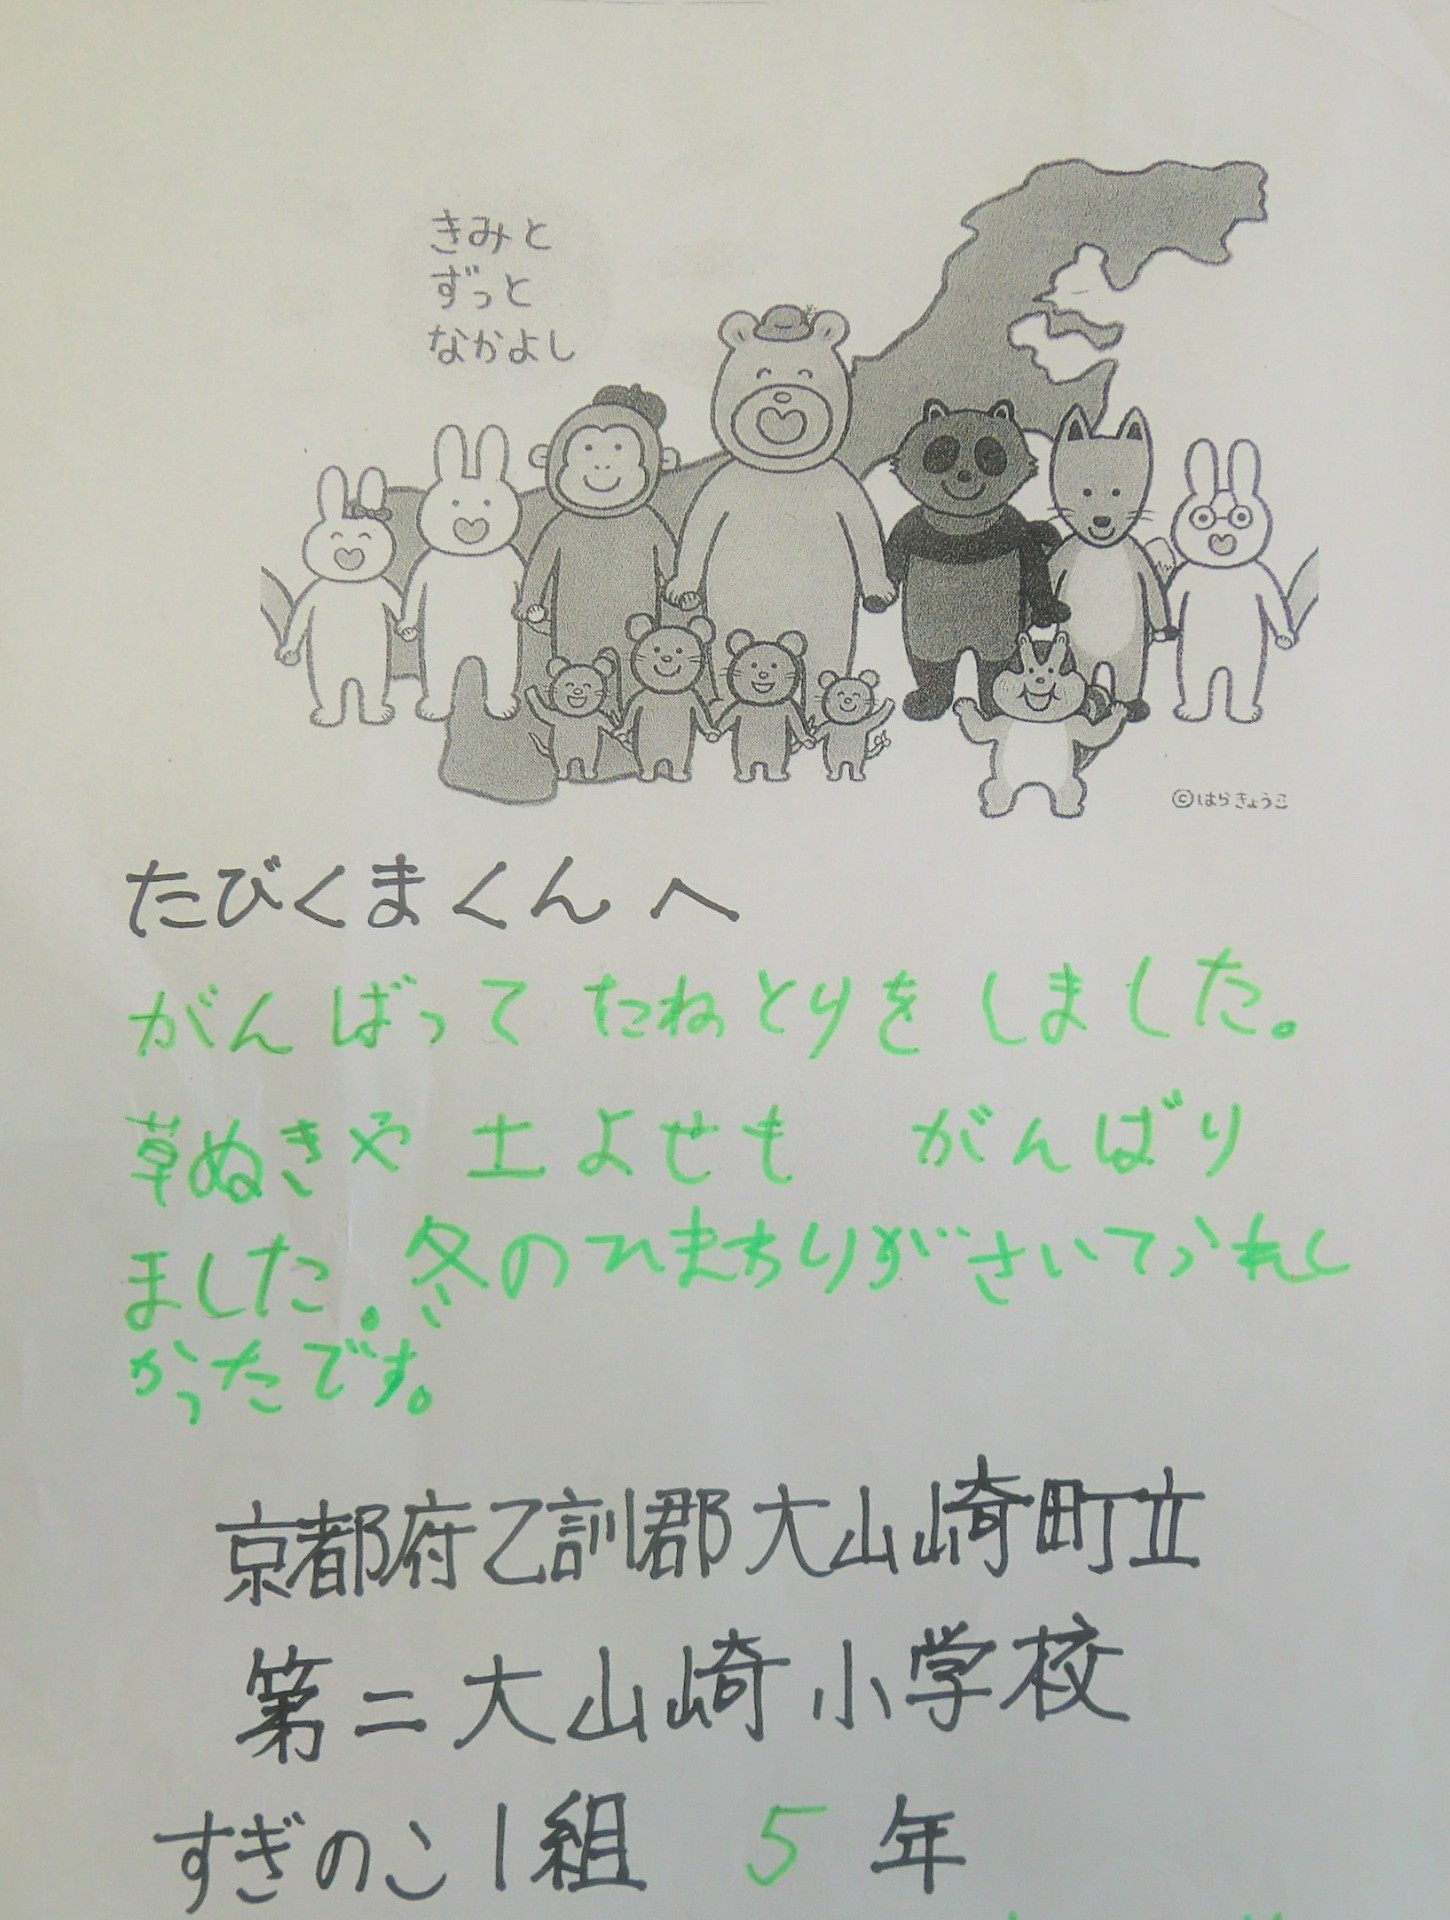 きみと
ずっと
なかよし
©はらきょうこ
たびくまくんへ
がんばって たねとりを しました。
草ぬきや 土よせも がんばり
ました。冬のひまわりがさいてうれし
かったです。
京都府乙訓郡大山崎町立
第二大山崎小学校
すぎのこ1組 5年